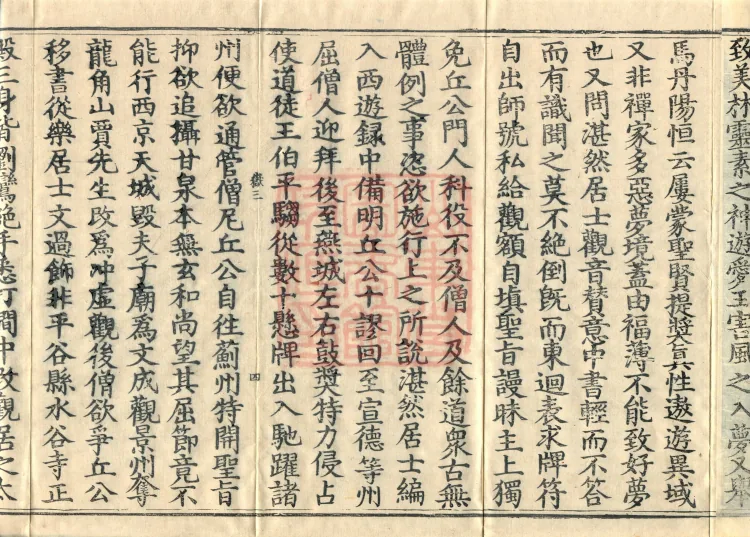 致美於靈素之神遊愛王害風之入夢又舉
馬丹陽恒云屢蒙聖賢提獎真性遨遊異域
又非禪家多惡夢境蓋由福薄不能致好夢
也又問湛然居士觀音贊意中書輕而不答
而有識聞之莫不絕倒既而東迴表求牌符
自出師號私給觀額自填聖旨謾昧主上獨
免丘公門人科役不及僧人及餘道衆古無
體例之事恣欲施行上之所說湛然居士編
入西遊録中備明丘公十謬回至宣德等州
屈僧人迎拜後至燕城左右鼓獎特力侵占
使道徒王伯平騶從數十懸牌出入馳躍諸
三 四
州便欲通管僧尼丘公自往薊州特開聖旨
抑欲追攝甘泉本無玄和尚望其屈節竟不
能行西京天城毀夫子廟為文成觀景州奪
龍角山賈先生改為冲虛觀後僧欲爭丘公
移書從樂居士文過飾非平谷縣水谷寺正
殿三身皆劉鸞絶手悉打澗中改觀居之太